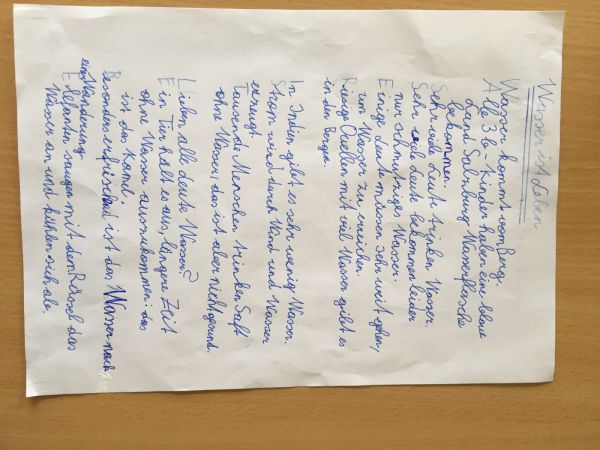 Wasser ist Leben
Wasser kommt vom Berg.
Alle 3b-Kinder haben eine blaue
Land Salzburg Wasserflasche
bekommen.
Sehr viele Leute trinken Wasser.
Sehr viele Leute bekommen leider
nur schmutziges Wasser.
Einige Leute müssen sehr weit gehen,
um Wasser zu erreichen.
Riesige Quellen mit viel Wasser gibt es
in den Bergen.
In Indien gibt es sehr wenig Wasser.
Strom wird durch Wind und Wasser
erzeugt.
Tausende Menschen trinken Saft
ohne Wasser, das ist aber nicht gesund.
Lieben alle Leute Wasser?
Ein Tier hält es aus, längere Zeit
ohne Wasser auszukommen: das
ist das Kamel.
Besonders erfrischend ist das Wasser nach
einer Wanderung.
Elefanten saugen mit dem Rüssel das
Wasser an und kühlen sich ab.